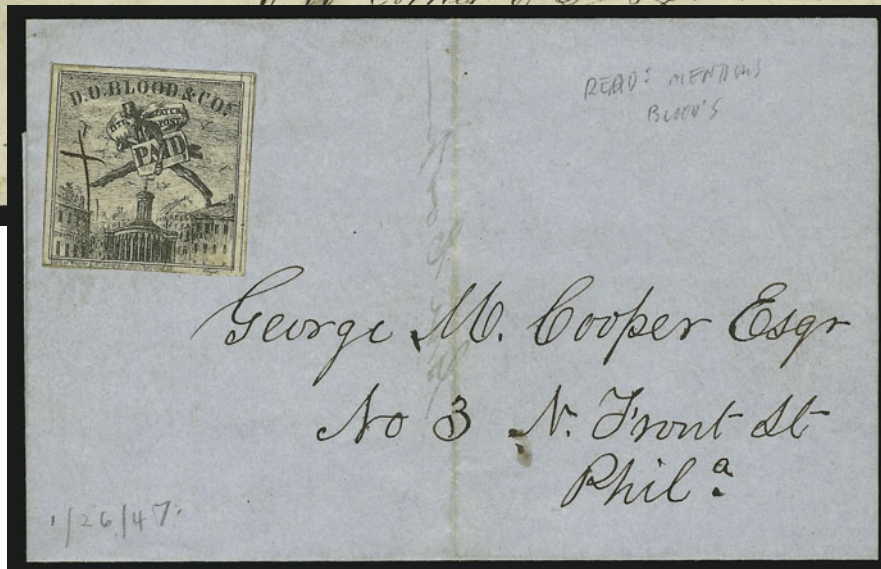 D.O.BLOOD & CO'S
PAID
READ: MENTIONS
BLOOD'S
George M. Cooper Esqr
No 3 N. Front St
Phil.a
1/26/47.